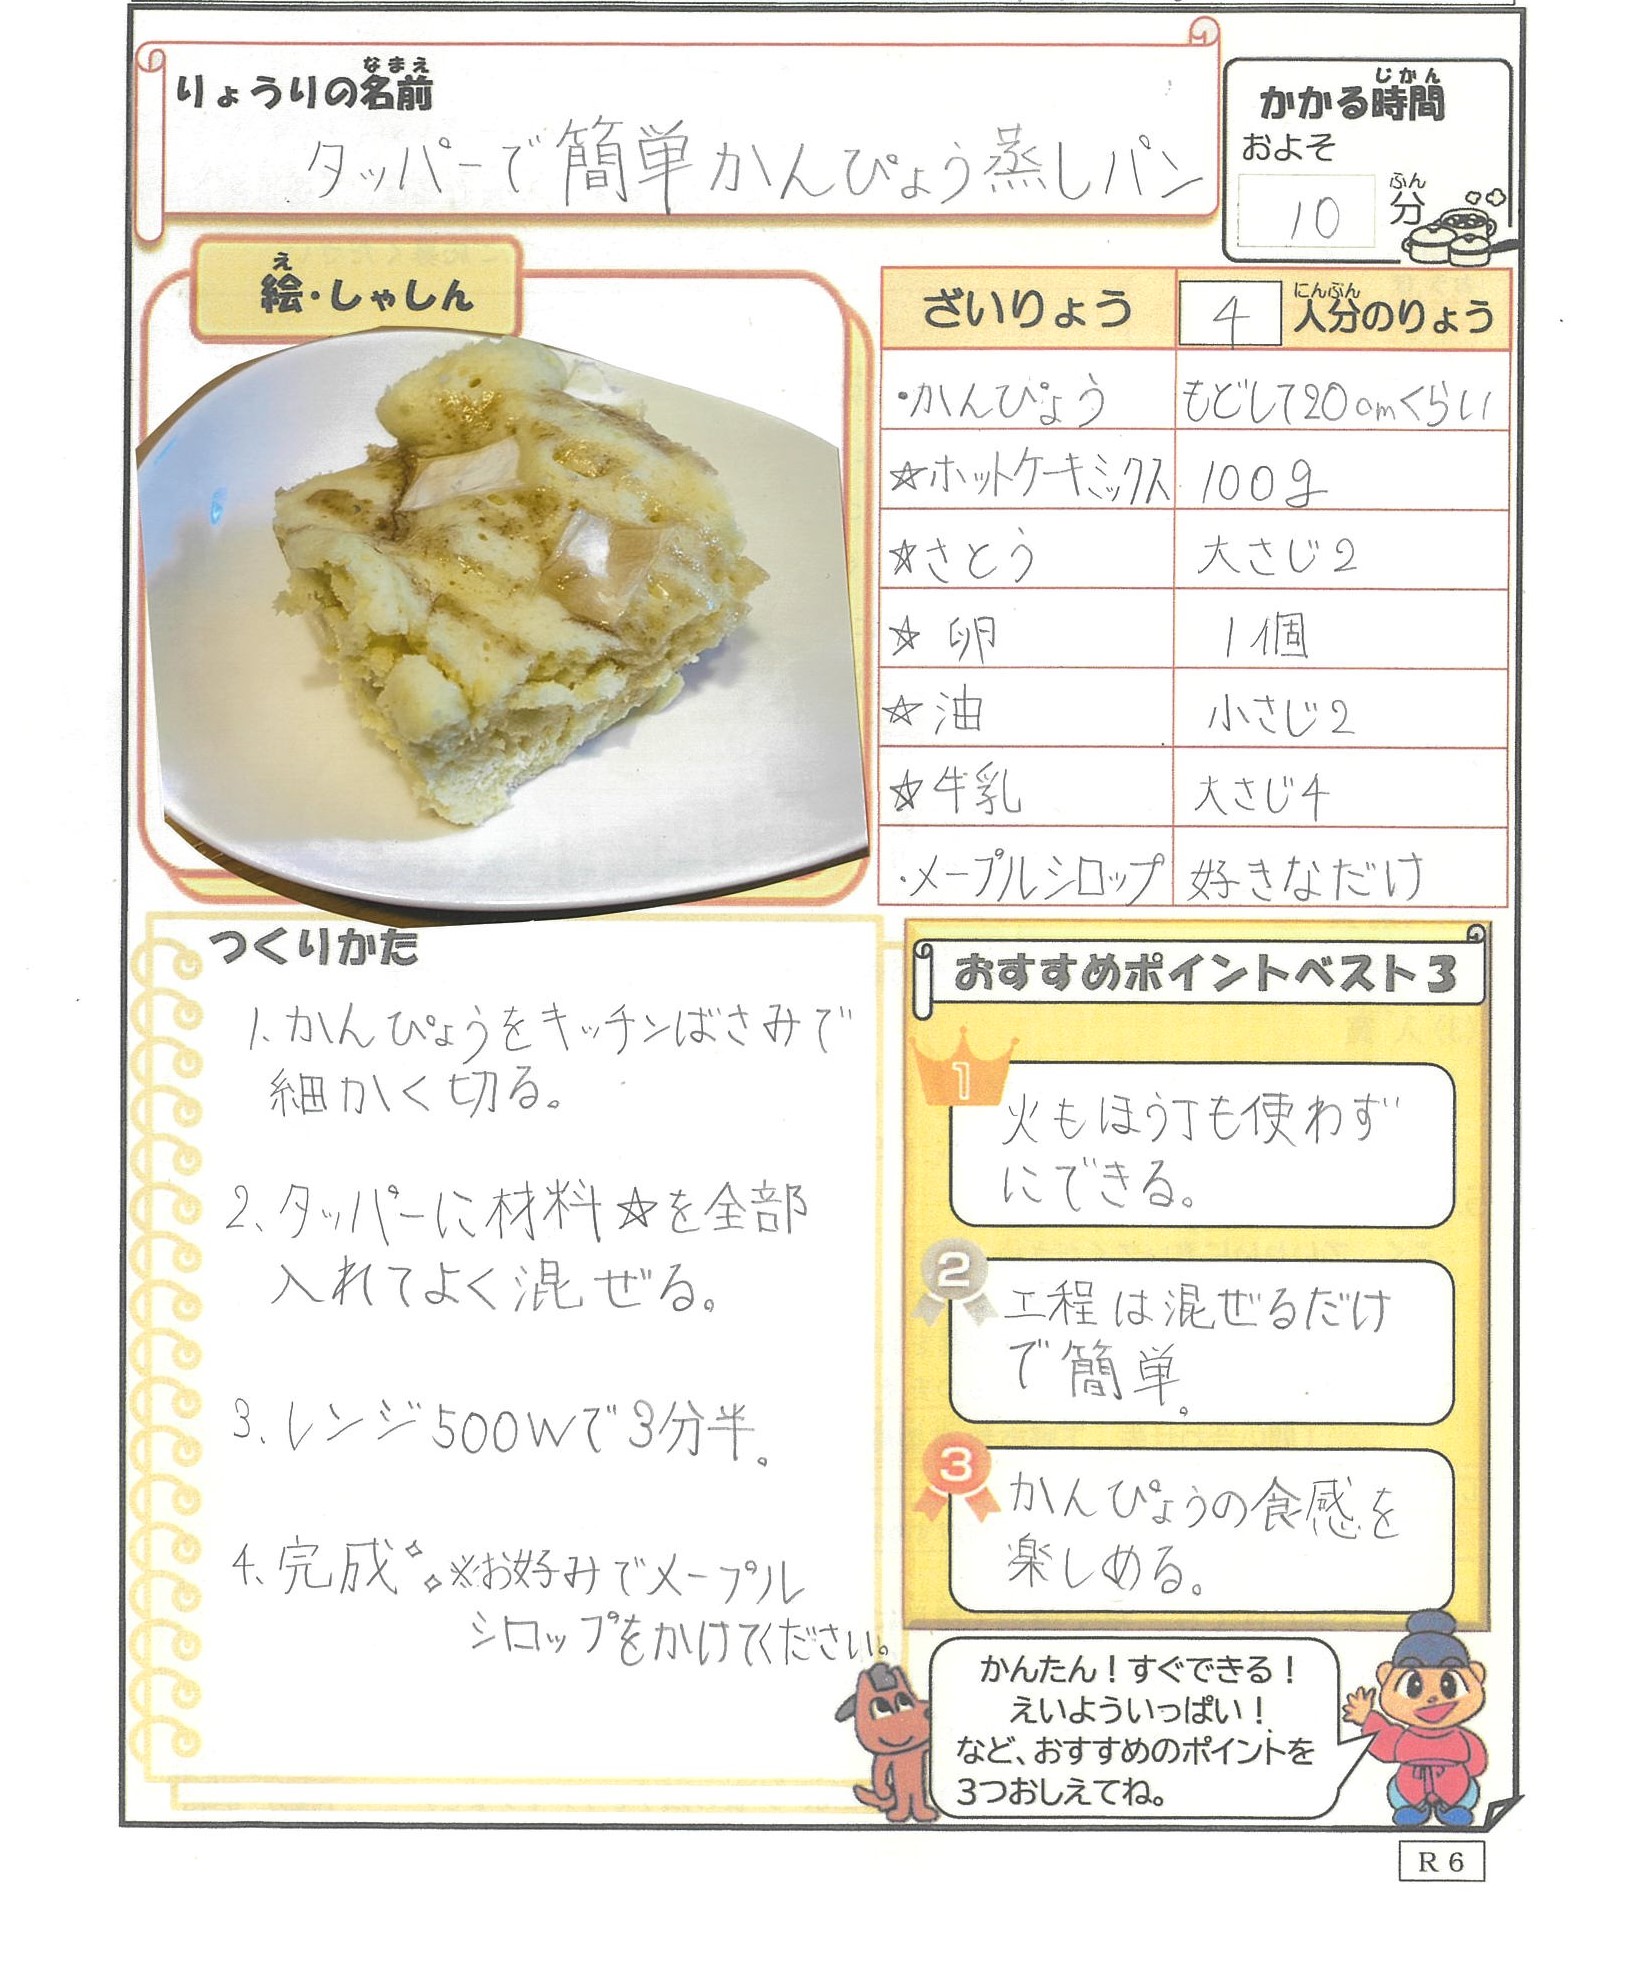 りょうりの名前
なまえ
タッパーで簡単かんぴょう蒸しパン
かかる時間
じかん
およそ
10分
ふん
絵・しゃしん
え
ざいりょう 4 人分のりょう
にんぶん
・かんぴょう もどして20cmくらい
☆ホットケーキミックス 100g
☆さとう 大さじ2
☆卵 1個
☆油 小さじ2
☆牛乳 大さじ4
・メープルシロップ 好きなだけ
つくりかた
1.かんぴょうをキッチンばさみで
細かく切る。
2、タッパーに材料☆を全部
入れてよく混ぜる。
3、レンジ500Wで3分半。
4、完成。※お好みでメープル
シロップをかけてください。
おすすめポイントベスト3
1
火もほう丁も使わず
にできる。
2
工程は混ぜるだけ
で簡単。
3
かんぴょうの食感を
楽しめる。
かんたん！すぐできる！
えいよういっぱい！
など、おすすめのポイントを
3つおしえてね。
R6